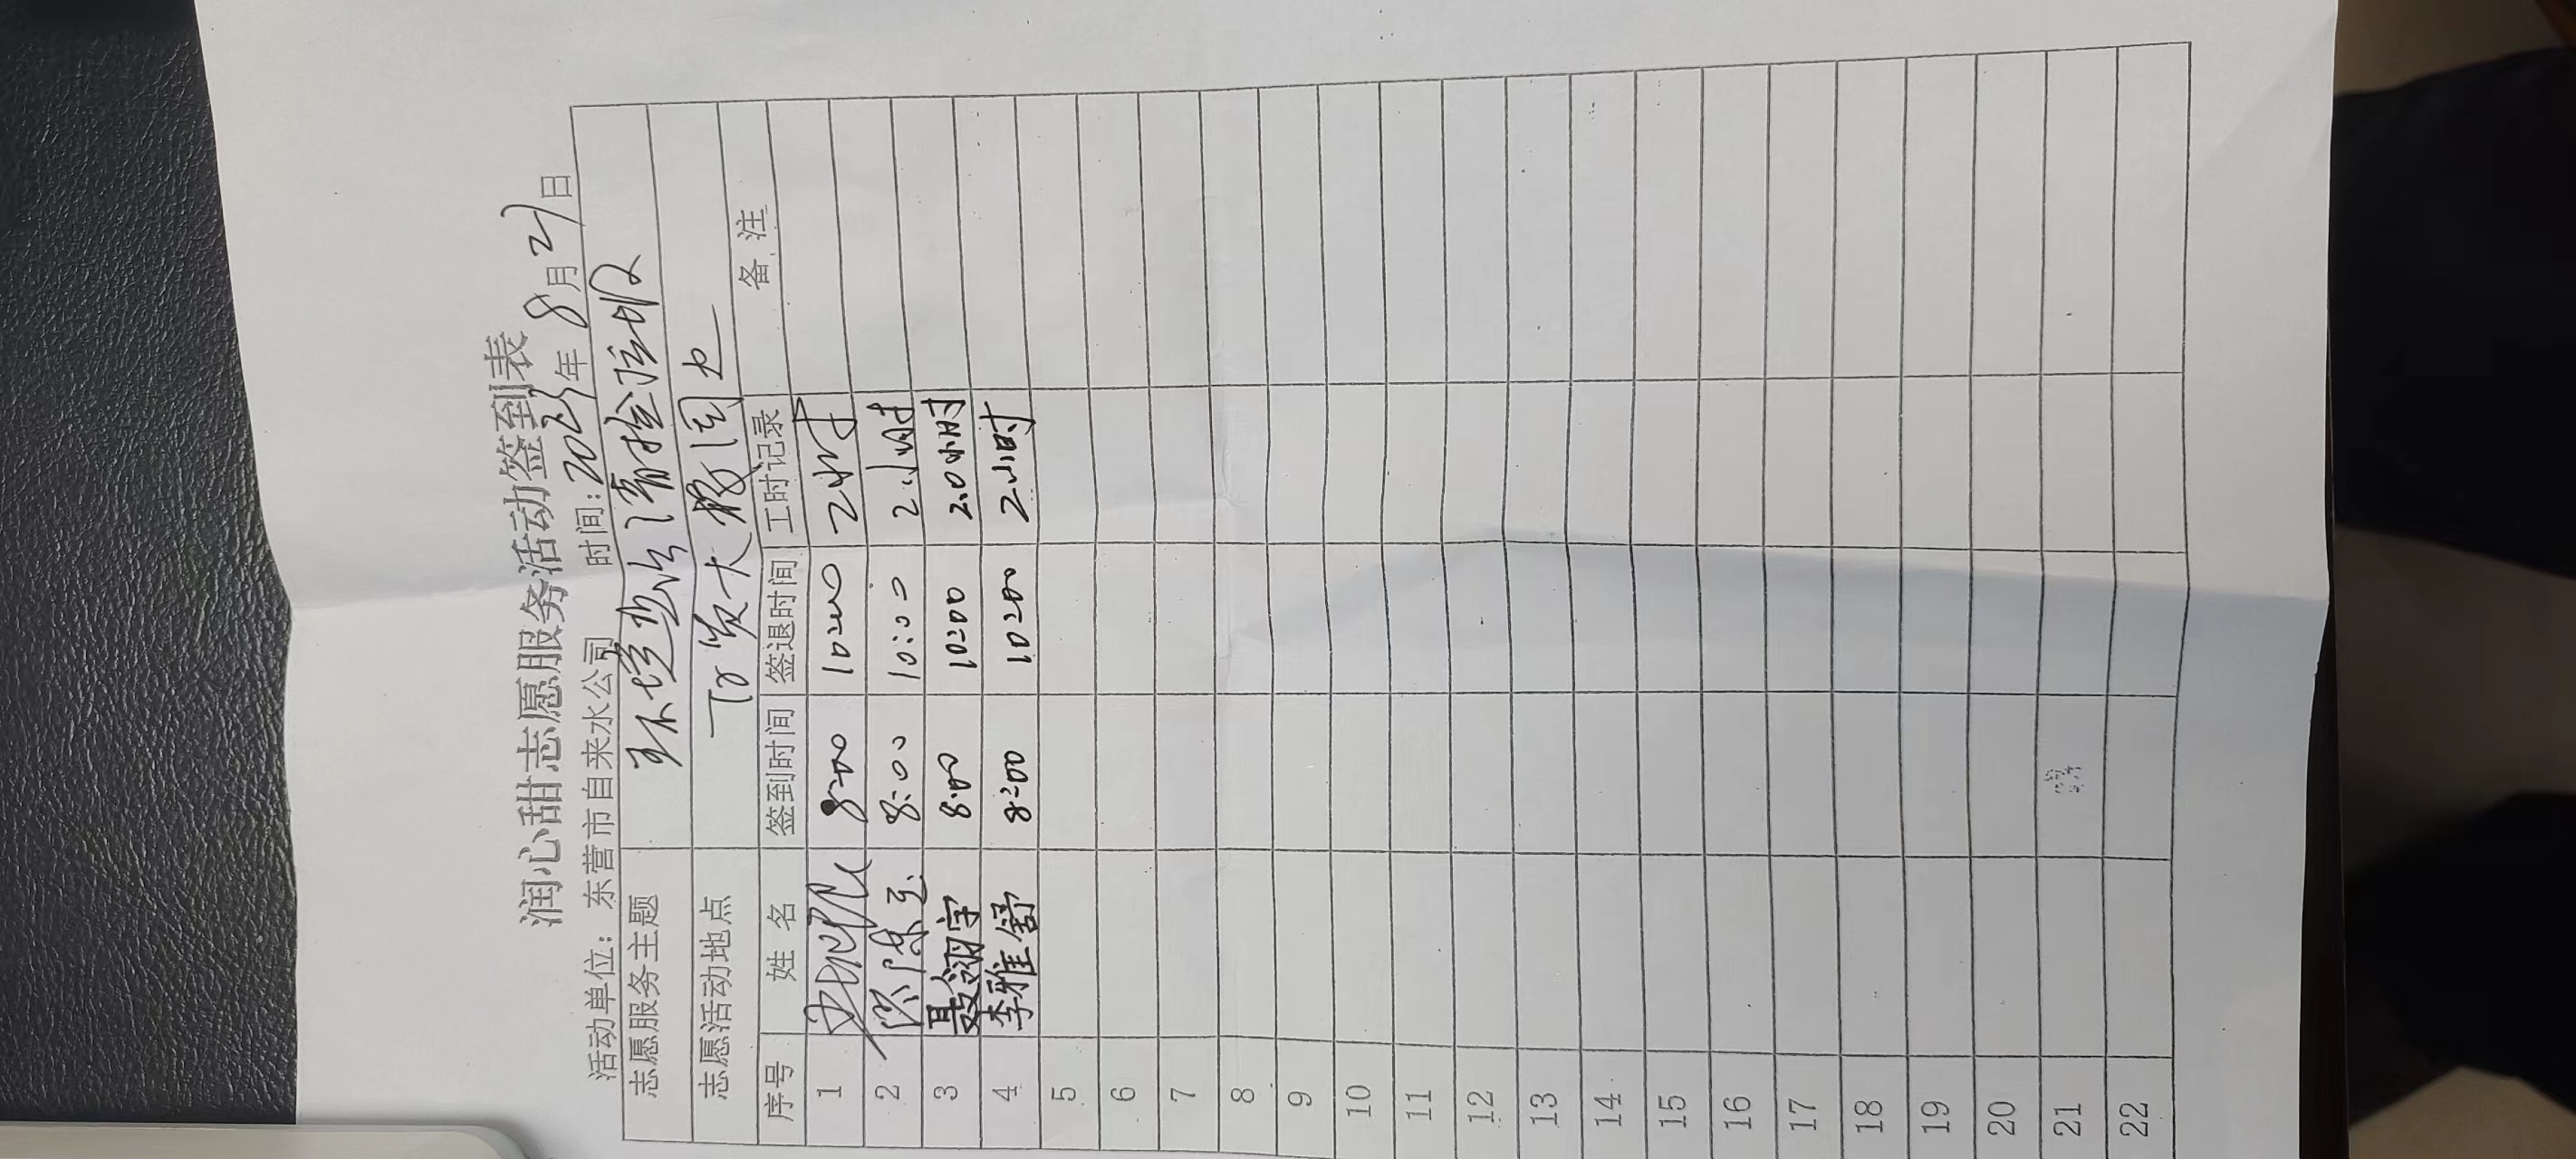 润心甜志愿服务活动签到表
活动单位：东营市自来水公司 时间：2025年8月21日
志愿服务主题 环境整治 清捡垃圾
志愿活动地点 周边
序号 姓名 签到时间 签退时间 工时记录 备注
1 8:00 10:00 2小时
2 8:00 10:00 2小时
3 聂翊宇 8:00 10:00 2.0小时
4 李雅舒 8:00 10:00 2小时
5
6
7
8
9
10
11
12
13
14
15
16
17
18
19
20
21
22